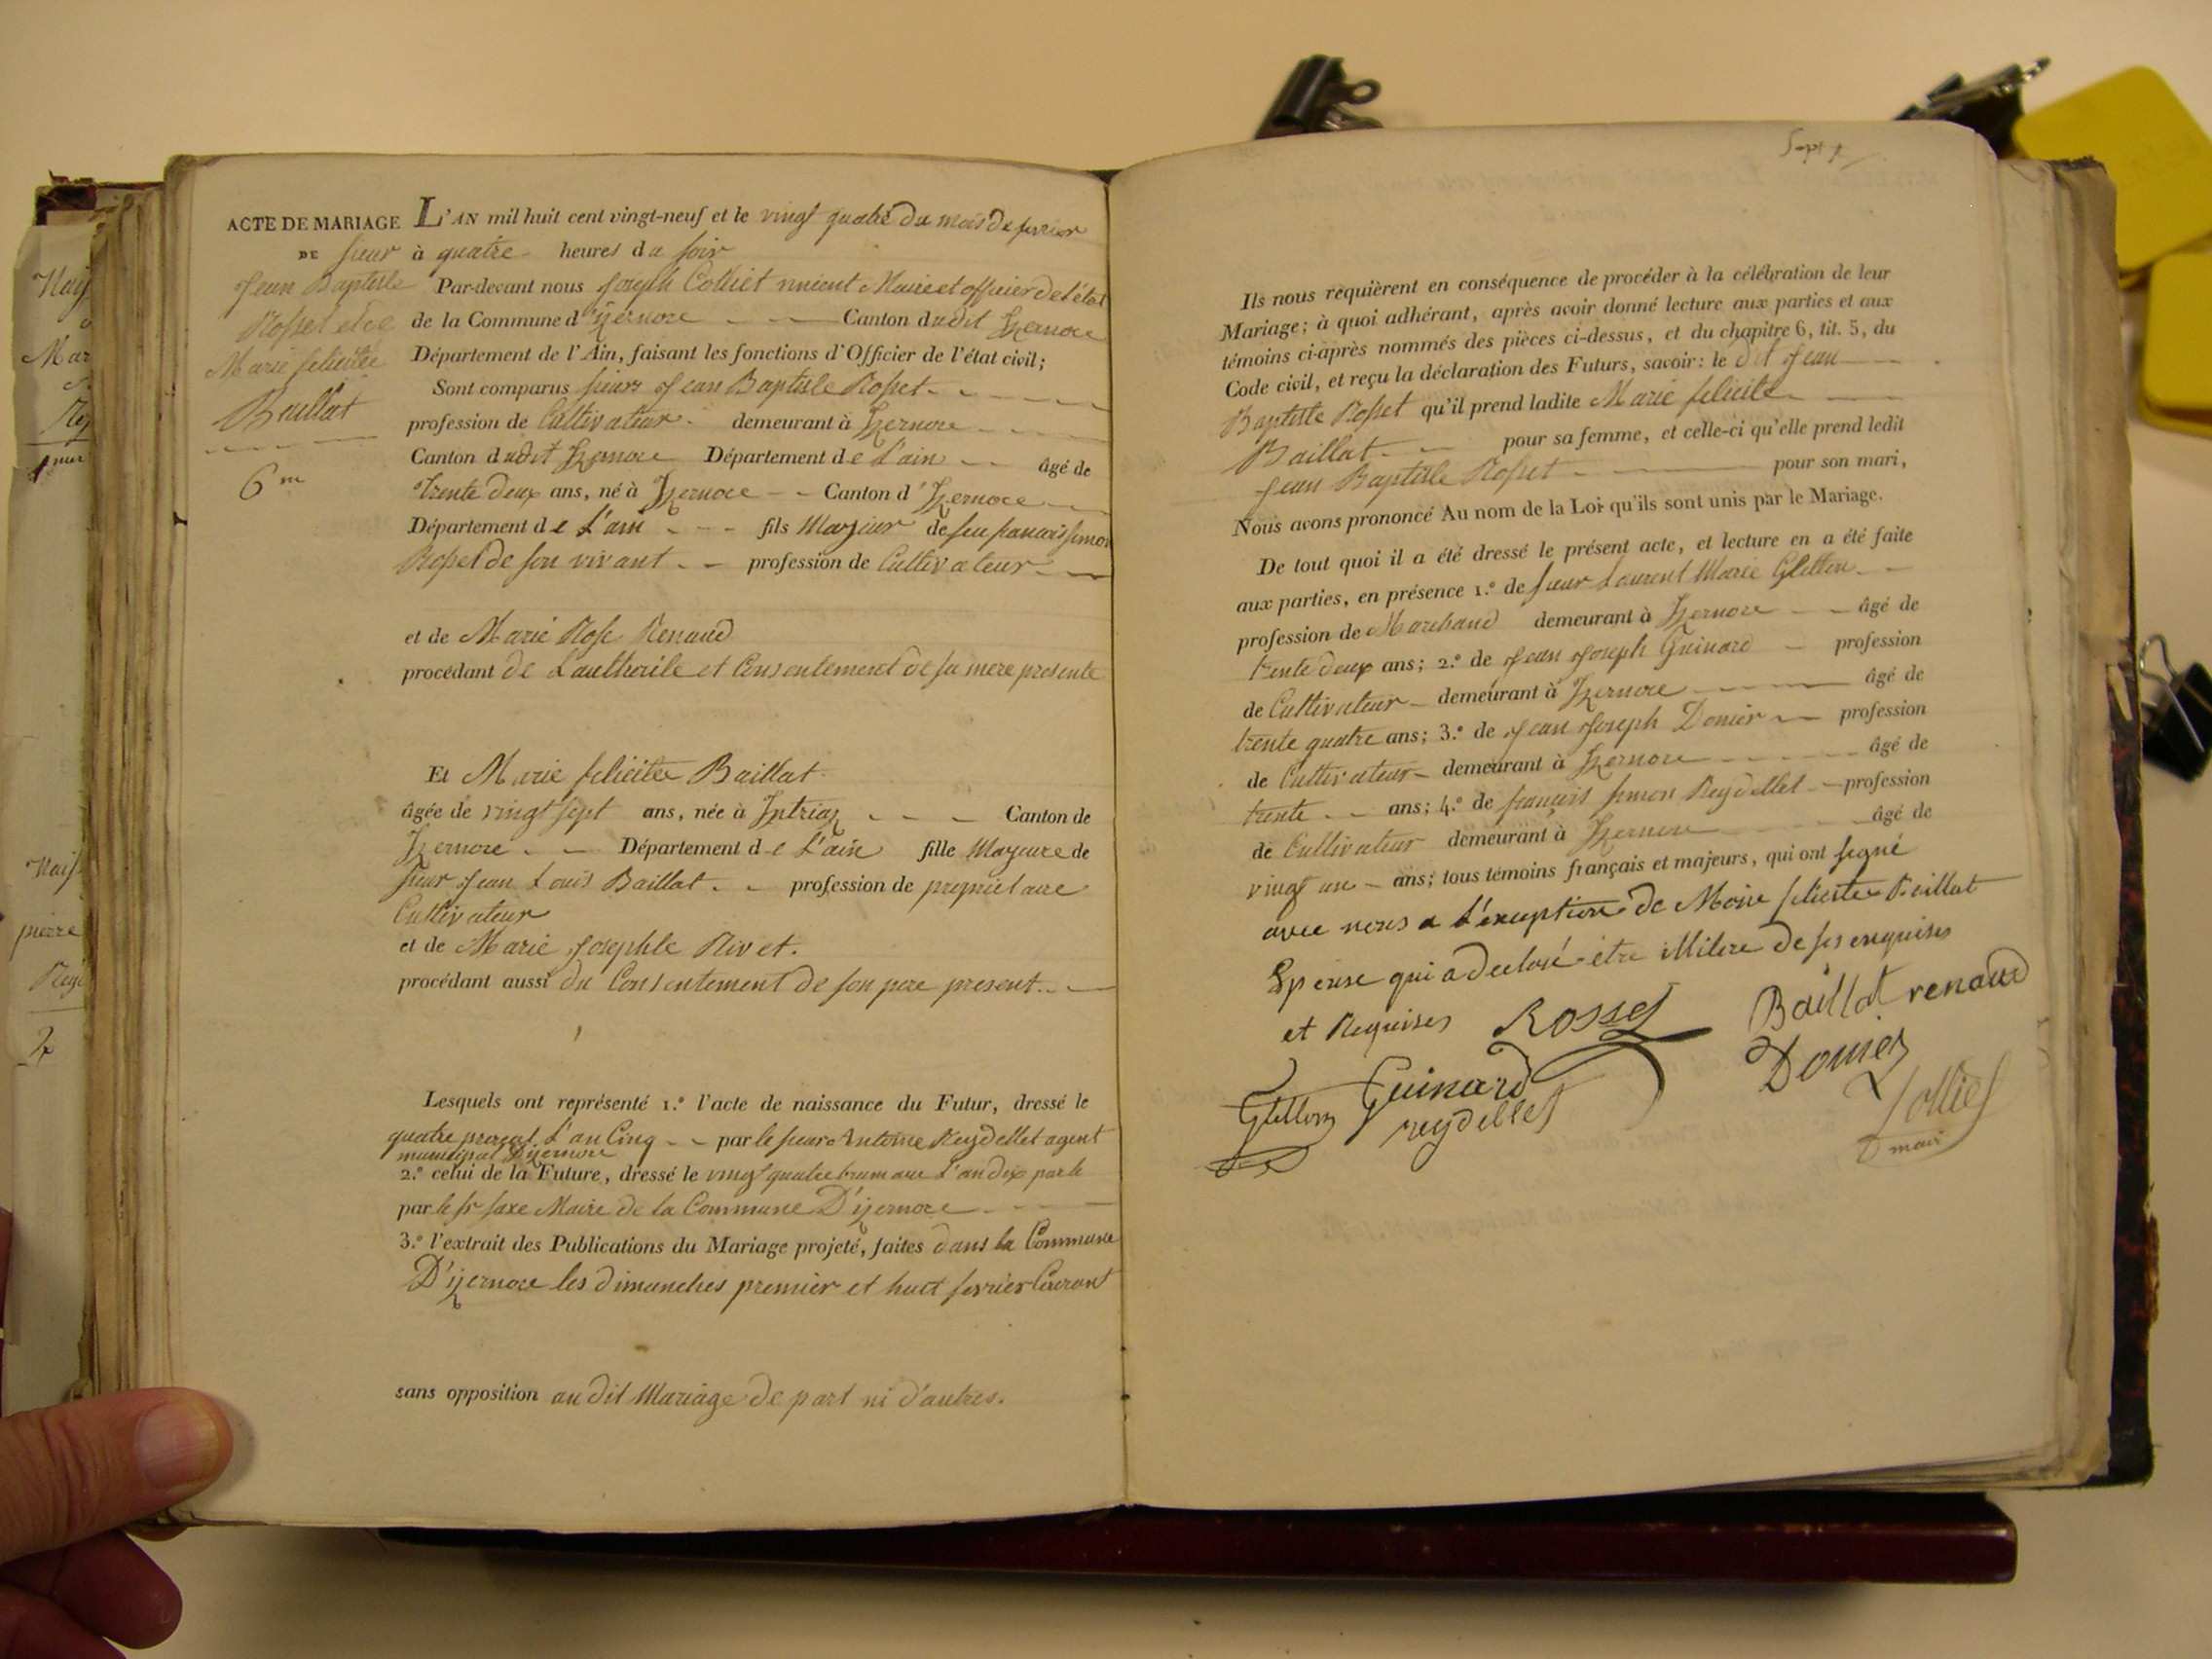 Sept
ACTE DE MARIAGE
DE sieur
Jean Baptiste
Rosset et de
Marie felicitée
Baillat
6 me
L'AN mil huit cent vingt-neuf et le vingt quatre du mois de fevrier
à quatre heures du soir
Par-devant nous Joseph Colliet Maire et officier de l'état
de la Commune d'Izernore Canton dudit Izernore
Département de l'Ain, faisant les fonctions d'Officier de l'état civil;
Sont comparus sieurs Jean Baptiste Rosset
profession de Cultivateur demeurant à Izernore
Canton dudit Izernore Département de L'ain âgé de
trente deux ans, né à Izernore Canton d'Izernore
Département de L'ain fils Majeur de feu francois simon
Rosset de son vivant profession de Cultivateur
et de Marie Rose Renaud
procédant de L'authorité et Consentement de sa mere presente
Et Marie felicitée Baillat
âgée de vingt sept ans, née à Intriaz Canton de
Izernore Département de L'ain fille Majeure de
sieur Jean Louis Baillat profession de propriétaire
Cultivateur
et de Marie Josephte Rivet.
procédant aussi du Consentement de son pere present.
Lesquels ont représenté 1.° l'acte de naissance du Futur, dressé le
quatre L'an Cinq par le sieur Antoine Reydellet agent
municipal D'izernore
2.° celui de la Future, dressé le vingt quatre brumaire L'an dix par le
par le sr saxe Maire de la Commune D'izernore
3.° l'extrait des Publications du Mariage projeté, faites dans la Commune
D'izernore les dimanches premier et huit fevrier Courant
sans opposition au dit Mariage de part ni d'autres.
Ils nous requièrent en conséquence de procéder à la célébration de leur
Mariage; à quoi adhérant, après avoir donné lecture aux parties et aux
témoins ci-après nommés des pièces ci-dessus, et du chapitre 6, tit. 5, du
Code civil, et reçu la déclaration des Futurs, savoir: le dit Jean
Baptiste Rosset qu'il prend ladite Marie felicité
Baillat pour sa femme, et celle-ci qu'elle prend ledit
Jean Baptiste Rosset pour son mari,
Nous avons prononcé Au nom de la Loi qu'ils sont unis par le Mariage.
De tout quoi il a été dressé le présent acte, et lecture en a été faite
aux parties, en présence 1.° de sieur Laurent Marie Glellon
profession de Marchand demeurant à Izernore âgé de
trente deux ans; 2.° de Jean Joseph Guinard profession
de Cultivateur demeurant à Izernore âgé de
trente quatre ans; 3.° de Jean Joseph Domier profession
de Cultivateur demeurant à Izernore âgé de
trente ans; 4.° de françois simon Reydellet profession
de Cultivateur demeurant à Izernore âgé de
vingt un ans; tous témoins français et majeurs, qui ont signé
avec nous a L'exception de Marie felicitée Baillat
Epouse qui a declaré être illitere de ses enquises
et Requises Rosset Baillat renaud
Guinard Domier
Glellon reydellet Colliet
maire